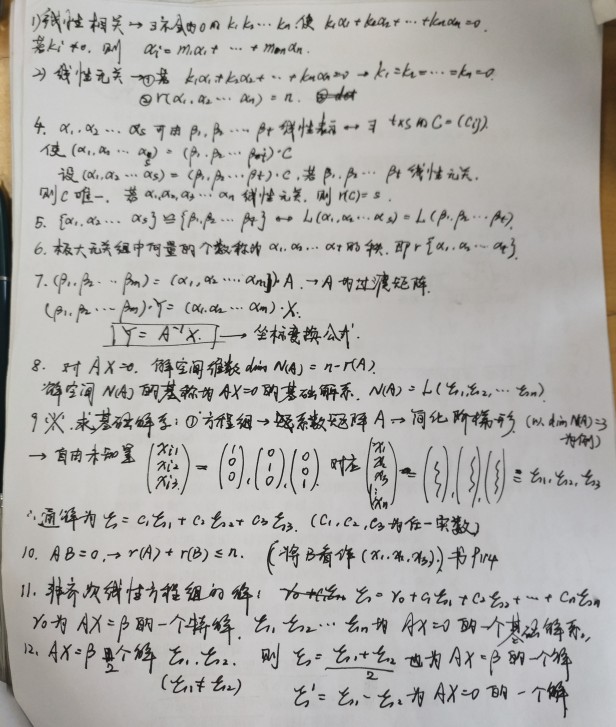 1) 线性相关 → ∃不全为0的 k₁k₂… kₙ 使 k₁α₁+k₂α₂+…+kₙαₙ=0.
若kᵢ≠0. 则 αᵢ=m₁α₁+…+mₙαₙ.
2) 线性无关 → ①若 k₁α₁+k₂α₂+…+kₙαₙ=0 → k₁=k₂=…=kₙ=0.
② r(α₁,α₂…αₙ)=n.
4. α₁,α₂…αs 可由 β₁,β₂…βt 线性表示 ↔ ∃ t×s的C=(Cij).
使 (α₁,α₂…αs)=(β₁,β₂…βt)·C
设(α₁,α₂…αs)=(β₁,β₂…βt)·C,若β₁,β₂…βt 线性无关.
则C唯一. 若α₁,α₂,α₃…αn 线性无关. 则 r(C)=s.
5. {α₁,α₂…αs}≌{β₁,β₂…βt} ↔ L(α₁,α₂…αs)=L(β₁,β₂…βt).
6. 极大无关组中向量的个数称为 α₁,α₂…αs的秩. 即r{α₁,α₂…αs}.
7. (β₁,β₂…βm)=(α₁,α₂…αm)·A. → A为过渡矩阵.
(β₁,β₂…βm)·Y=(α₁,α₂…αm)·X.
Y=A⁻¹X. → 坐标变换公式.
8. 对 AX=0. 解空间维数dim N(A)=n-r(A).
解空间N(A)的基称为AX=0的基础解系. N(A)=L(ξ₁,ξ₂,…ξn).
9.※.求基础解系:①方程组→ 系数矩阵A→简化阶梯形. (以dim N(A)=3为例)
→ 自由未知量 (xi₁ xi₂ xi₃) = (1 0 0),(0 1 0),(0 0 1) 对应 (x₁ x₂ x₃ ⋮ xn) = ( ),( ),( ) ≡ ξ₁,ξ₂,ξ₃
∴通解为 ξ=c₁ξ₁+c₂ξ₂+c₃ξ₃. (c₁,c₂,c₃为任一实数)
10. AB=0,→ r(A)+r(B)≤n. (将B看作(x₁,x₂,x₃).) 书P114
11. 非齐次线性方程组的解: ξ=γ₀+c₁ξ₁+c₂ξ₂+…+cnξn
γ₀为AX=β的一个特解. ξ₁,ξ₂…ξn为 AX=0的一个基础解系.
12. AX=β 2个解 ξ₁,ξ₂. 则 ξ₃=(ξ₁+ξ₂)/2 也为AX=β的一个解
(ξ₁≠ξ₂) ξ'=ξ₁-ξ₂为AX=0的一个解